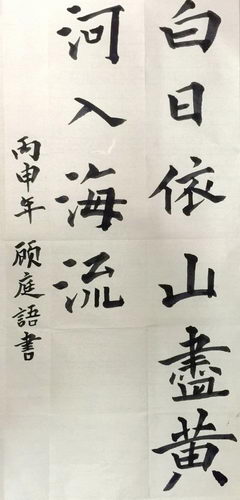 白日依山盡黄
河入海流
丙申年 顾庭語書